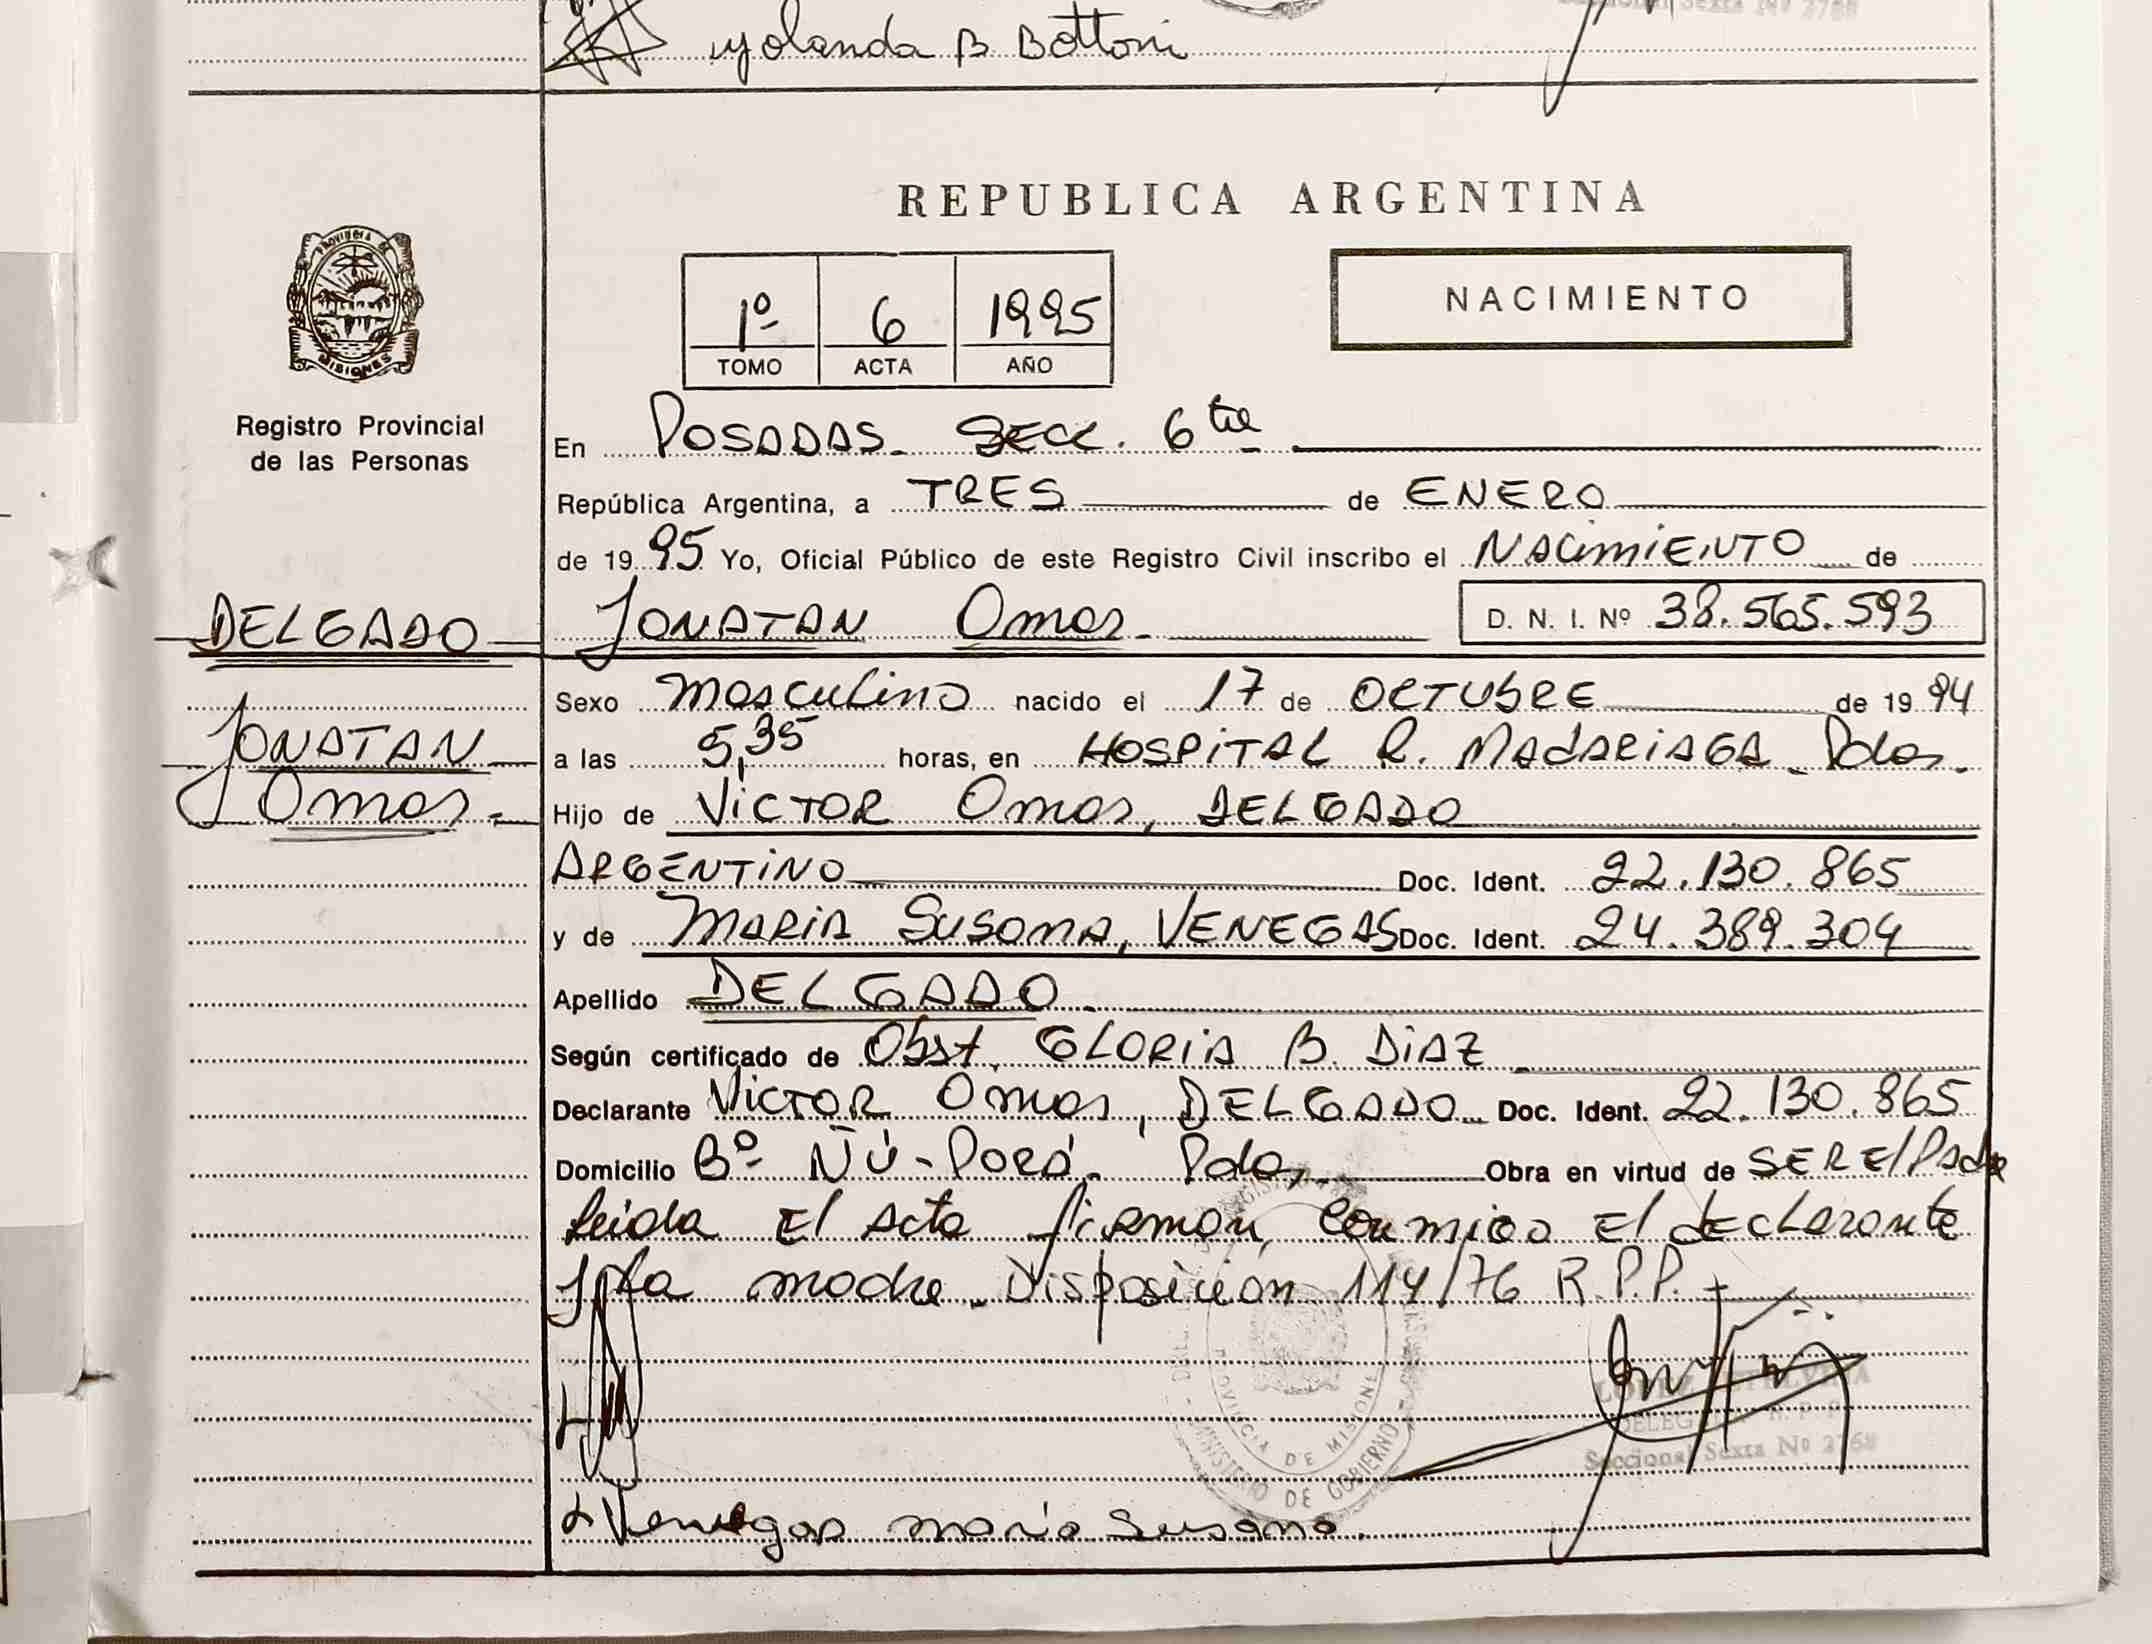 Yolanda B Bottoni
Seccional Sexta Nº 2768
REPUBLICA ARGENTINA
PROVINCIA DE
MISIONES
1º 6 1995
TOMO ACTA AÑO
NACIMIENTO
Registro Provincial
de las Personas
En POSADAS. SECC. 6ta
República Argentina, a TRES de ENERO
de 1995 Yo, Oficial Público de este Registro Civil inscribo el NACIMIENTO de
DELGADO JONATAN Omar D. N. I. Nº 38.565.593
Sexo Masculino nacido el 17 de OCTUBRE de 1994
JONATAN
a las 5,35 horas, en HOSPITAL R. MADARIAGA - Pdas.
Omar.
Hijo de VICTOR Omar, DELGADO
ARGENTINO Doc. Ident. 22.130.865
y de MARIA SUSANA, VENEGAS Doc. Ident. 24.389.304
Apellido DELGADO
Según certificado de Obst. GLORIA B. DIAZ
Declarante VICTOR Omar, DELGADO Doc. Ident. 22.130.865
Domicilio Bº ÑU-PORÁ. Pdas, Obra en virtud de SER El Padre
leida El Acta firman, conmigo El declarante
y la madre. Disposición 114/76 R.P.P.
PROVINCIA DE MISIONES
MINISTERIO DE GOBIERNO
Seccional Sexta Nº 2768
Venegas maria Susana.